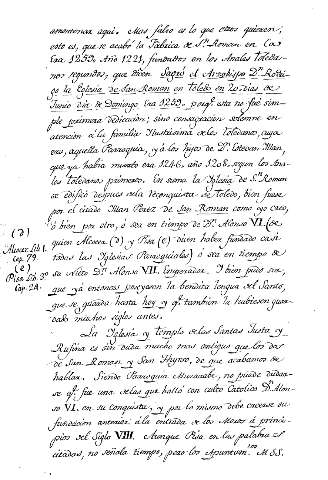 amontonan aqui. Mas falso es lo que otros quieren;
esto es, que se acabó la Fabrica de Sn. Roman en la
Era 1259. Año 1221, fundados en los Anales Toleda-
nos segundos, que dicen Sagró el Arzobispo Dn. Rodri-
go la Eglesia de San Roman en Toledo en los dias de
Junio dia de Domingo Era 1259. porqe. esta no fué sim-
ple primera dedicacion; sino consagracion solemne en
atencion á la familia Ilustrisima de los Toledanos, cuya
era, aquella Parroquia, y á los hijos de Dn. Estevan Illan,
que ya habia muerto era 1246, año 1208, segun los Ana-
les Toledanos primeros. En suma la Iglesia de Sn. Roman
se edificó despues de la reconquista de Toledo, bien fuese
por el citado Illan Perez de San Roman como yo creo,
ó bien por otro, ó sea en tiempo de Dn. Alonso VI. (de
quien Alcocer (d) y Pisa (e) dicen haber fundado casi
todas las Iglesias Parroquiales) ó sea en tiempo de
su nieto Dn. Alonso VII. Emperador. Y bien pudo ser,
que ya entonces poseyesen la bendita lengua del Santo,
que se guarda hasta hoy y qe. tambien la hubiesen guar-
dado muchos siglos antes.
(d)
Alcocer lib. 1.
cap. 79.
(e)
Pisa lib. 3º
Cap. 24.
La Iglesia y Templo de las Santas Justa y
Rufina es sin duda mucho mas antiguo que los dos
de San Roman y San Thyrso, de que acabamos de
hablar. Siendo Parroquia Muzarabe, no puede dudar-
se qe. fue una de las que halló con culto Catolico Dn. Alon-
so VI. en su conquista, y por lo mismo debe creerse su
fundacion anterior á la entrada de los Moros á princi-
pios del Siglo VIII. Aunque Pisa en las palabras
citadas, no señala tiempo, pero los Apuntam.tos MSS.